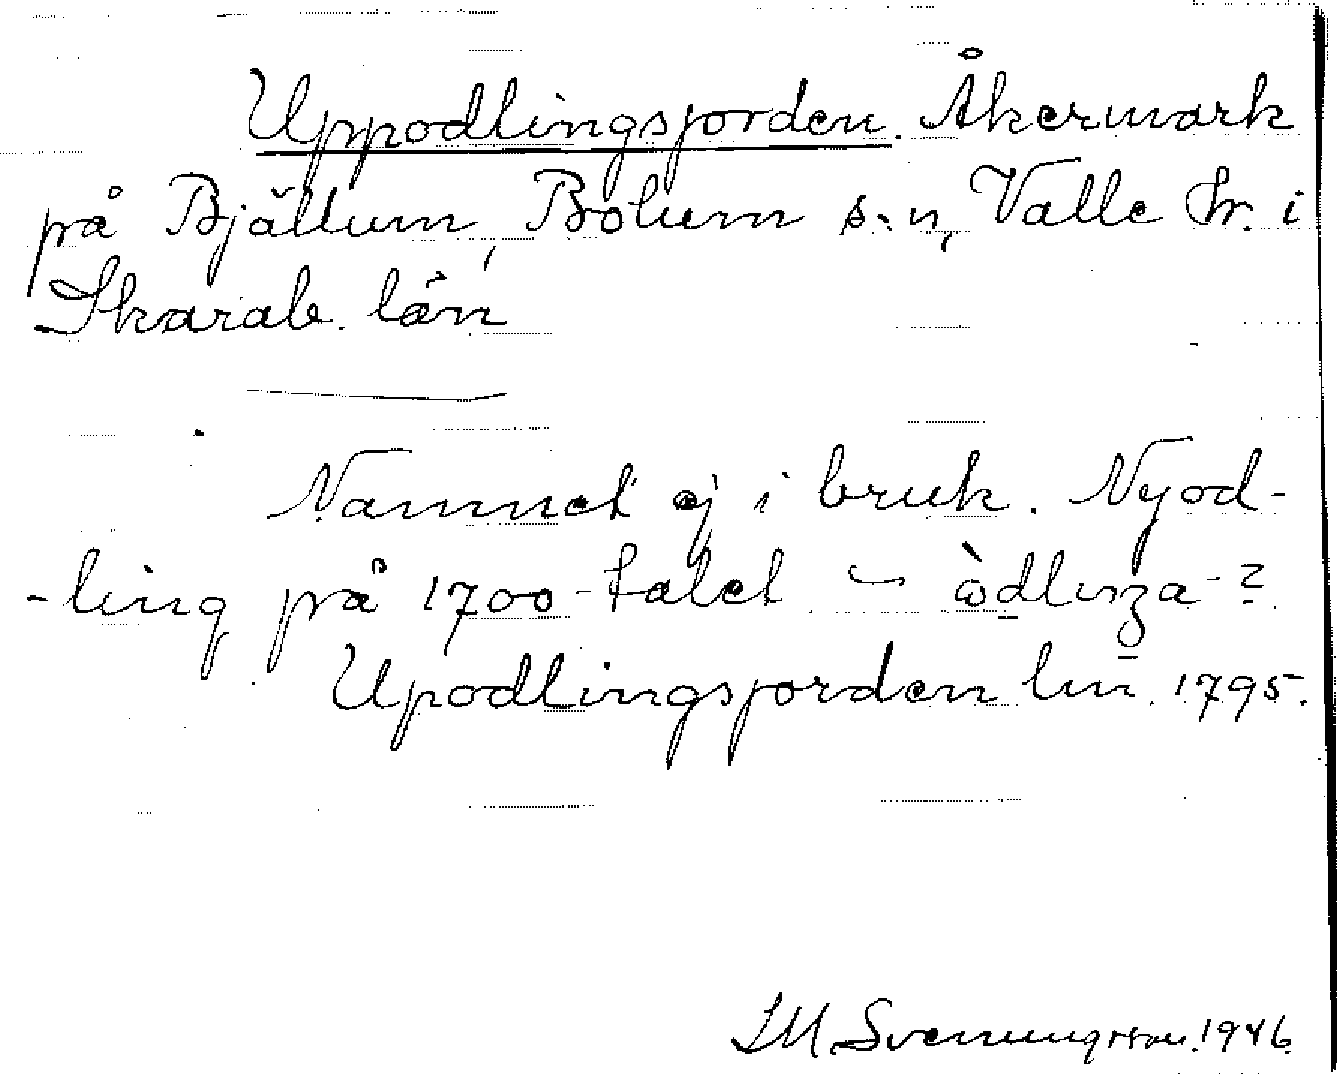 Uppodlingsjorden. Åkermark
på Bjällum, Bolum s:n, Valle hr. i
Skarab. län
Namnet ej i bruk. Nyod-
-ling på 1700-talet – òdlinga-?
Upodlingsjorden lm 1795.
S.M. Svenungsson. 1946.